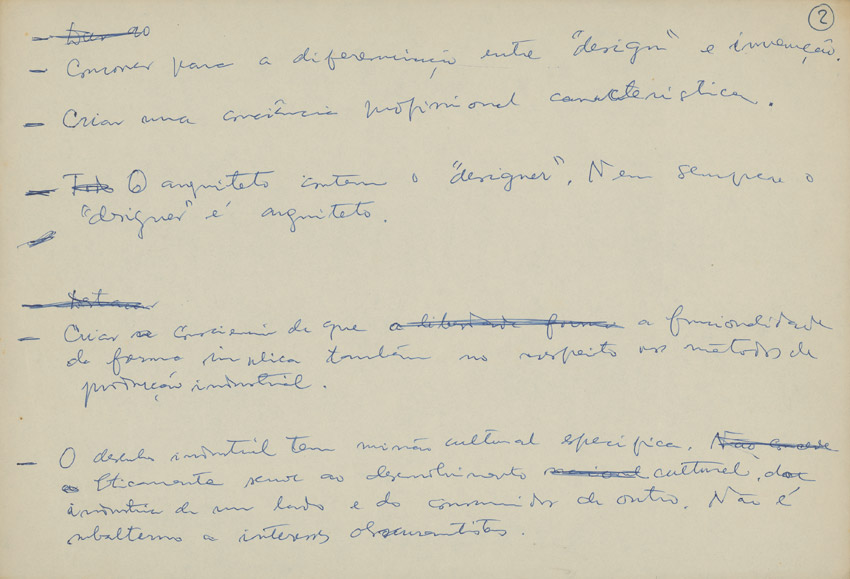 2
— Dar ao
— Concorrer para a diferenciação entre "design" e invenção.
— Criar uma consciência profissional característica.
— Todo O arquiteto contem o "designer". Nem sempre o
"designer" é arquiteto.
— Destacar
— Criar consciencia de que a liberdade forma a funcionalidade
da forma implica também no respeito aos métodos de
produção industrial.
— O desenho industrial tem missão cultural especifica. Não
Eticamente serve ao desenvolvimento cultural, da
indústria de um lado e do consumidor de outro. Não é
subalterno a interesses obscurantistas.